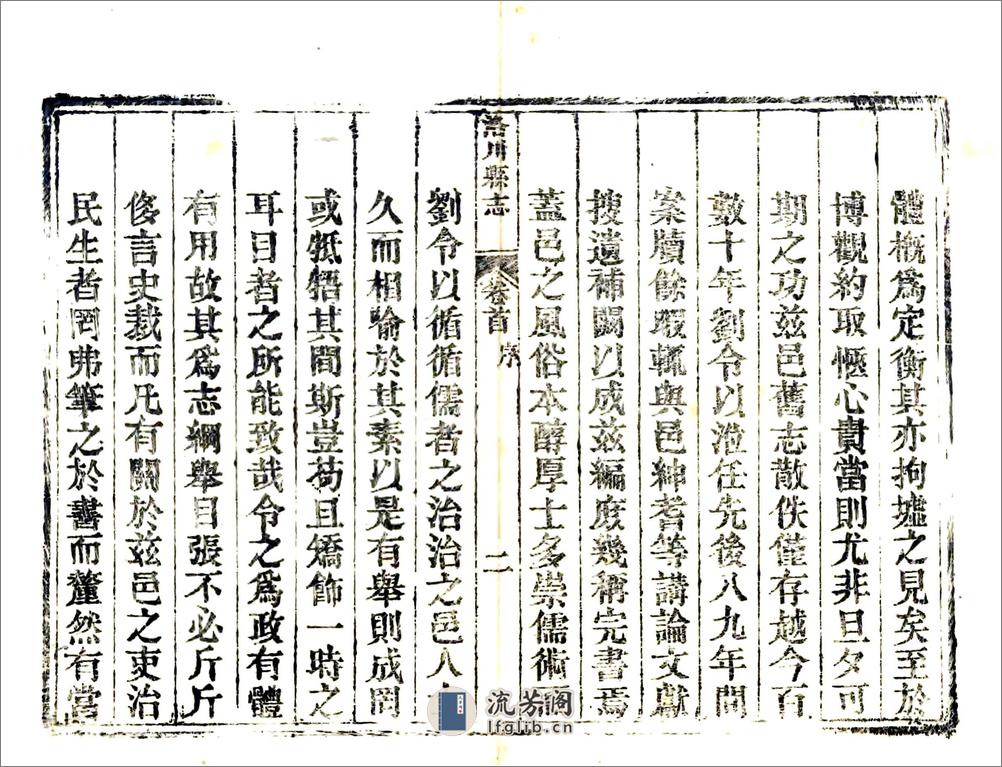 體槪爲定衡其亦拘墟之見矣至於
博觀約取愜心貴當則尤非旦夕可
期之功兹邑舊志散佚僅存越今百
數十年劉令以涖任先後八九年間
案牘餘暇輒與邑紳耆等講論文獻
搜遺補闕以成兹編庻幾稱完書焉
蓋邑之風俗本醇厚士多崇儒術
洛川縣志
卷首 序
二
劉令以循循儒者之治治之邑人
久而相喻於其素以是有舉則成罔
或牴牾其間斯豈苟且矯飾一時之
耳目者之所能致哉令之爲政有體
有用故其爲志綱舉目張不必斤斤
侈言史裁而凡有關於兹邑之吏治
民生者罔弗筆之於書而釐然有當
流芳阁
lfglib.cn